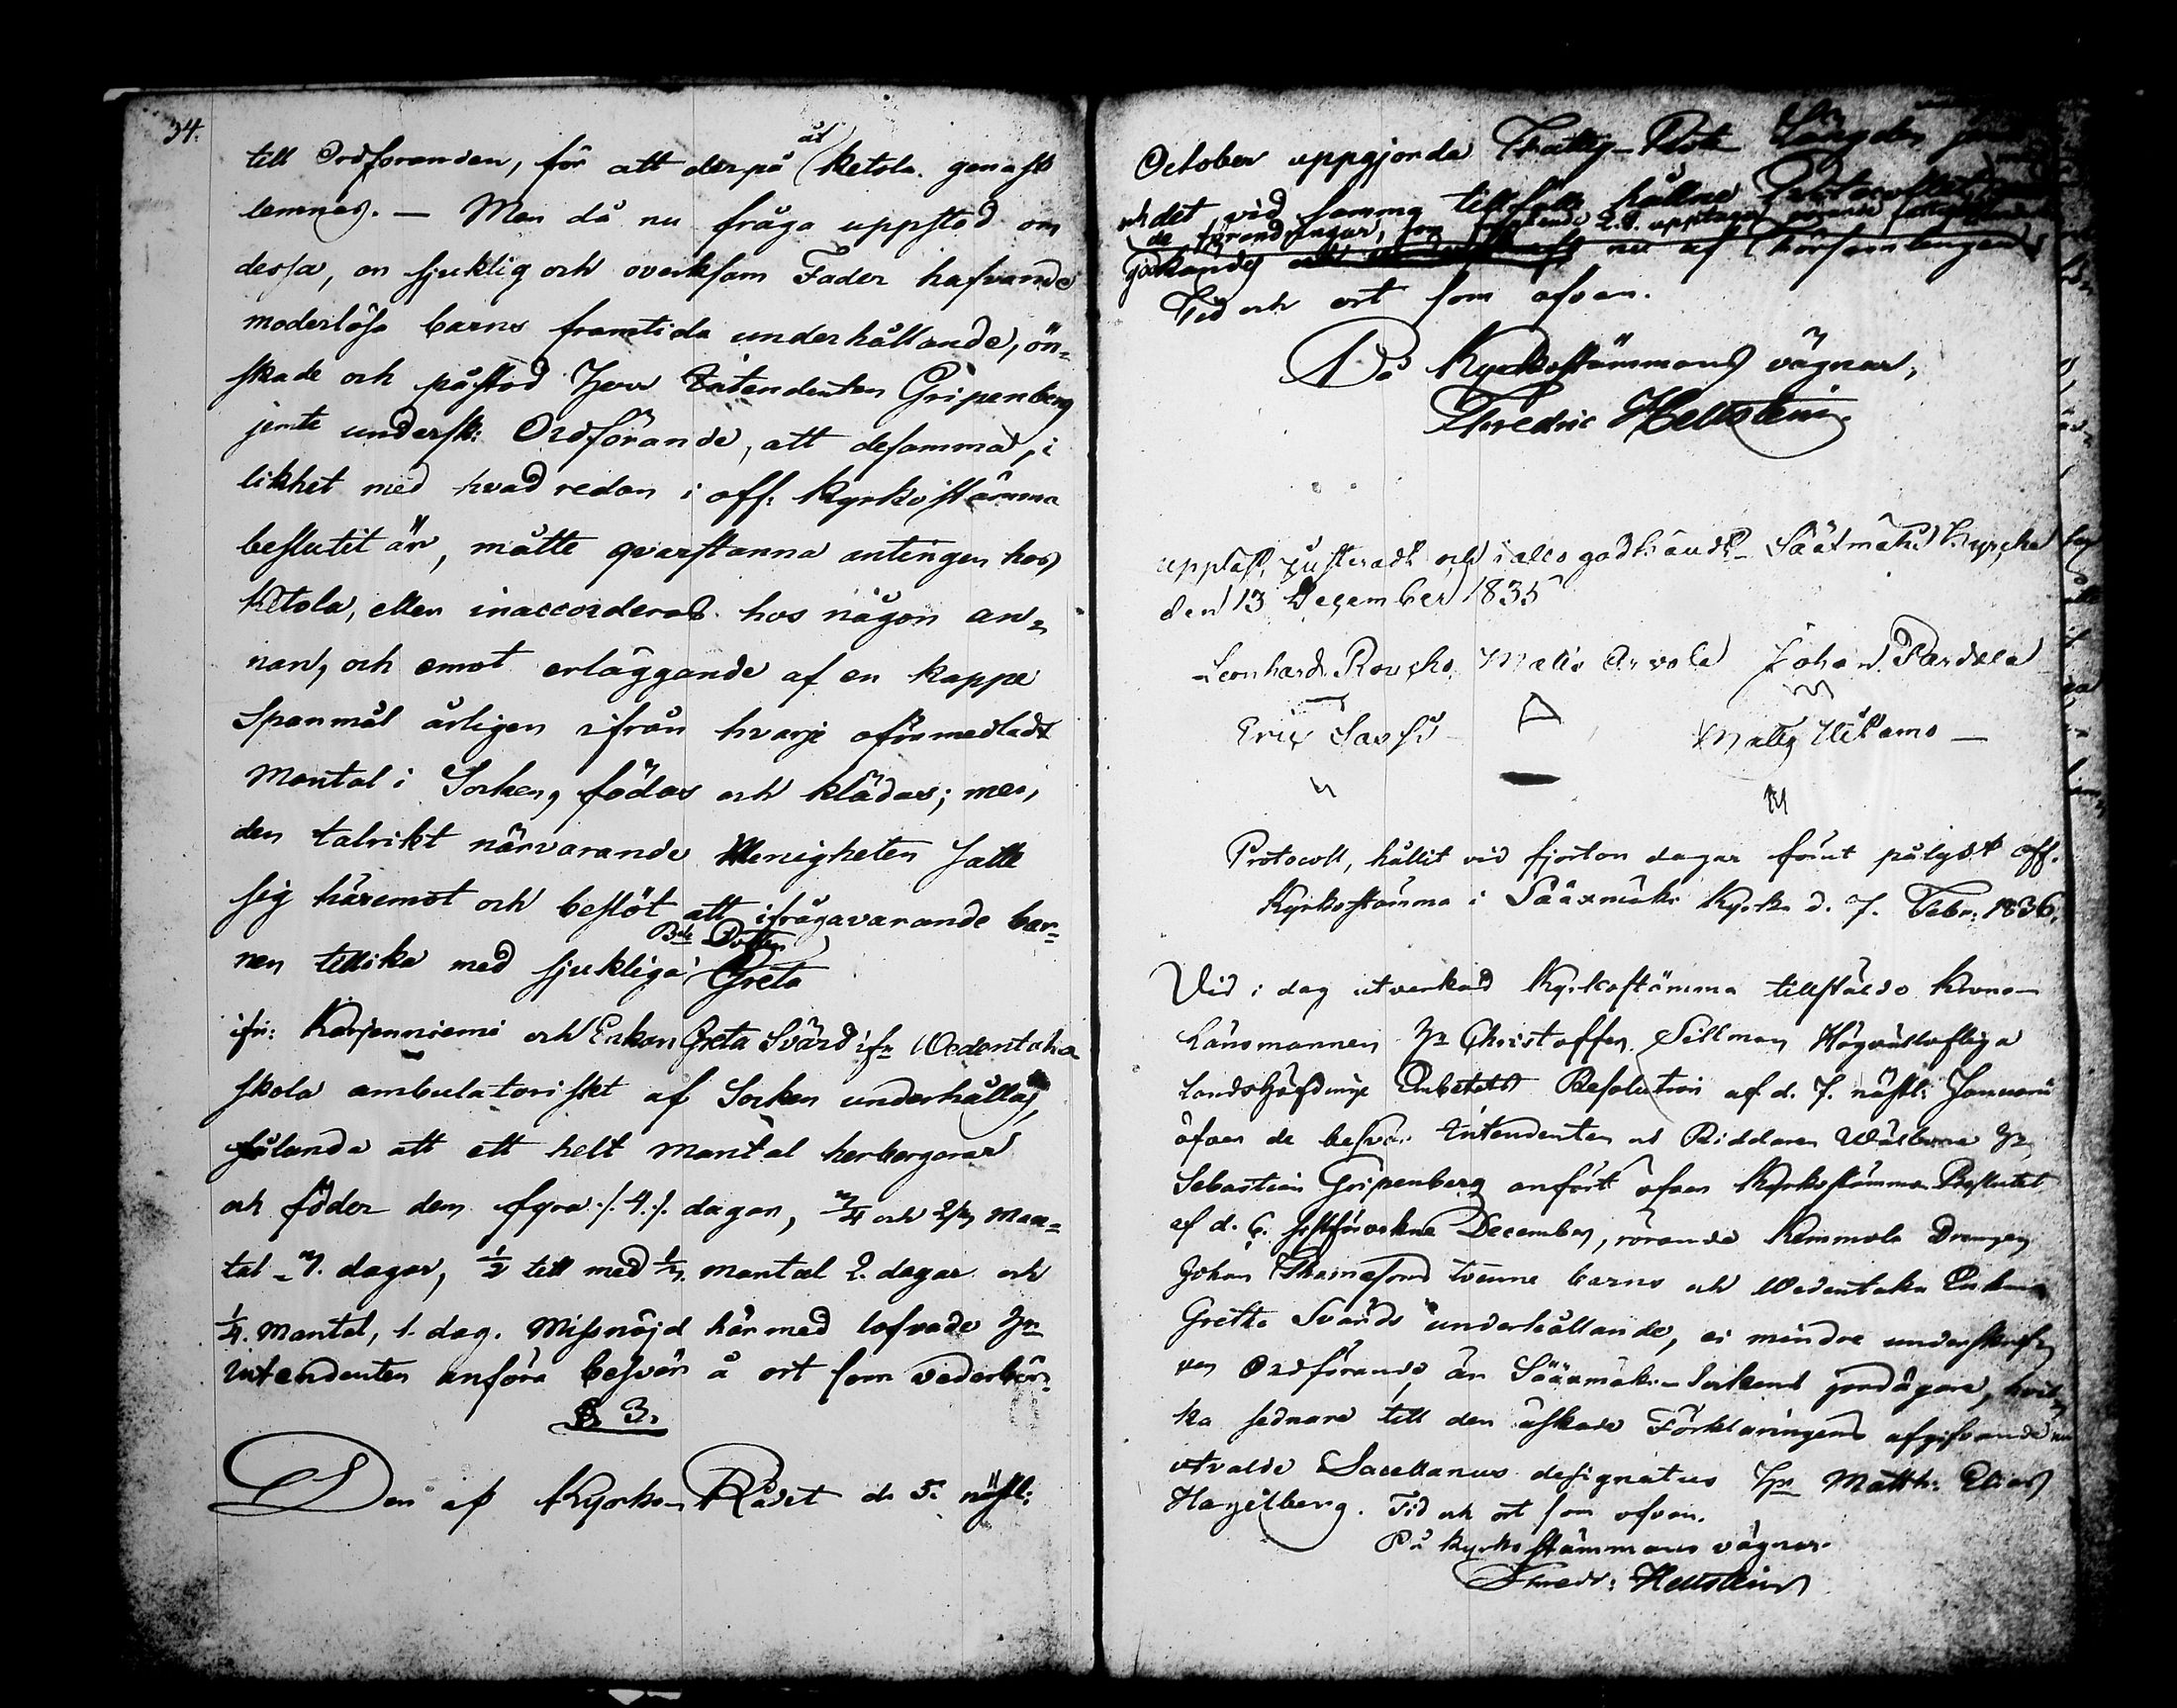 34.
till Ordföranden, för att derpå åt Ketola genast
lemnas. — Men då nu fråga uppstod om
dessa, en sjuklig och overksam Fader hafvande
moderlösa barns framtida underhållande, ön-
skade och påstod Herr Intendenten Gripenberg
jemte undersk: Ordförande, att desamma, i
likhet med hvad redan i off: Kyrkostämma
beslutit är, måtte qvarstanna antingen hos
Ketola, eller inaccorderas hos någon an-
nan, och emot erläggande af en kappe
Spanmål årligen ifrån hvarje oförmedladt
Mantal i Socken, födas och klädas; men
den talrikt närvarande Menigheten satte
sig häremot och beslöt att ifrågavarande bar-
nen tillika med sjukliga Bde Dotter Greta
ifr: Karjenniemi och Enkan Greta Svärd ifr Wedentaka
skola ambulatoriskt af Socken underhållas,
sålunda att ett helt Mantal herbergerar
och föder dem fyra ./. 4 ./. dagar, och Man-
tal 3. dagar, ½ till med ⅓ mantal 2. dagar och
¼. Mantal, 1. dag. Missnöjd härmed lofvade Hr
Intendenten anföra besvär å ort som vederbör.
§ 3.
Den af Kyrko-Rådet d. 5. näst:
October uppgjorda Fattig-Rote Längden
och det vid samma tillfälle hållne Protocollet
de förändringar, som upptager
godkändes nu af Församlingen
Tid och ort som ofvan.
På Kyrkostämmans vägnar,
Fredric Hellstenius
uppläst, justeradt och i allo godkändt Sääxmäki Kyrcka
den 13 December 1835
Leonhard Rouko Matts Arvola Johan Pardala
Eric Saxi Matts Uitamo —
Protocoll, hållit vid fjorton dagar förut pålyst off.
Kyrkostämma i Sääxmäki Kyrka d. 7. Febr: 1836.
Vid i dag utverkad Kyrkostämma tillstälde Krono-
Länsmannen Hr Christoffer Sillman Högvällofliga
Landshöfdinge Embetets Resolution af d. 7. nästl: Januarii
öfver de besvär Intendenten och Riddaren Wälborne Hr
Sebastian Gripenberg anfört öfver Kyrkostämmo Beslutet
af d. 6. sistförvekne December, rörande Kemmola Drengen
Johan Thomassons tvenne barns och Wedentaka Enkan
Gretha Svärds underhållande, ei mindre underskrif-
ven Ordförande än Sääxmäki-Sockens jordägare, hvil-
ka sednare till den äskade Förklaringens afgifvande
utvalde Sacellanus designatus Hr Matth: Elias
Hagelberg. Tid och ort som ofvan.
På Kyrkostämmans vägnar.
Fredr: Hellstenius